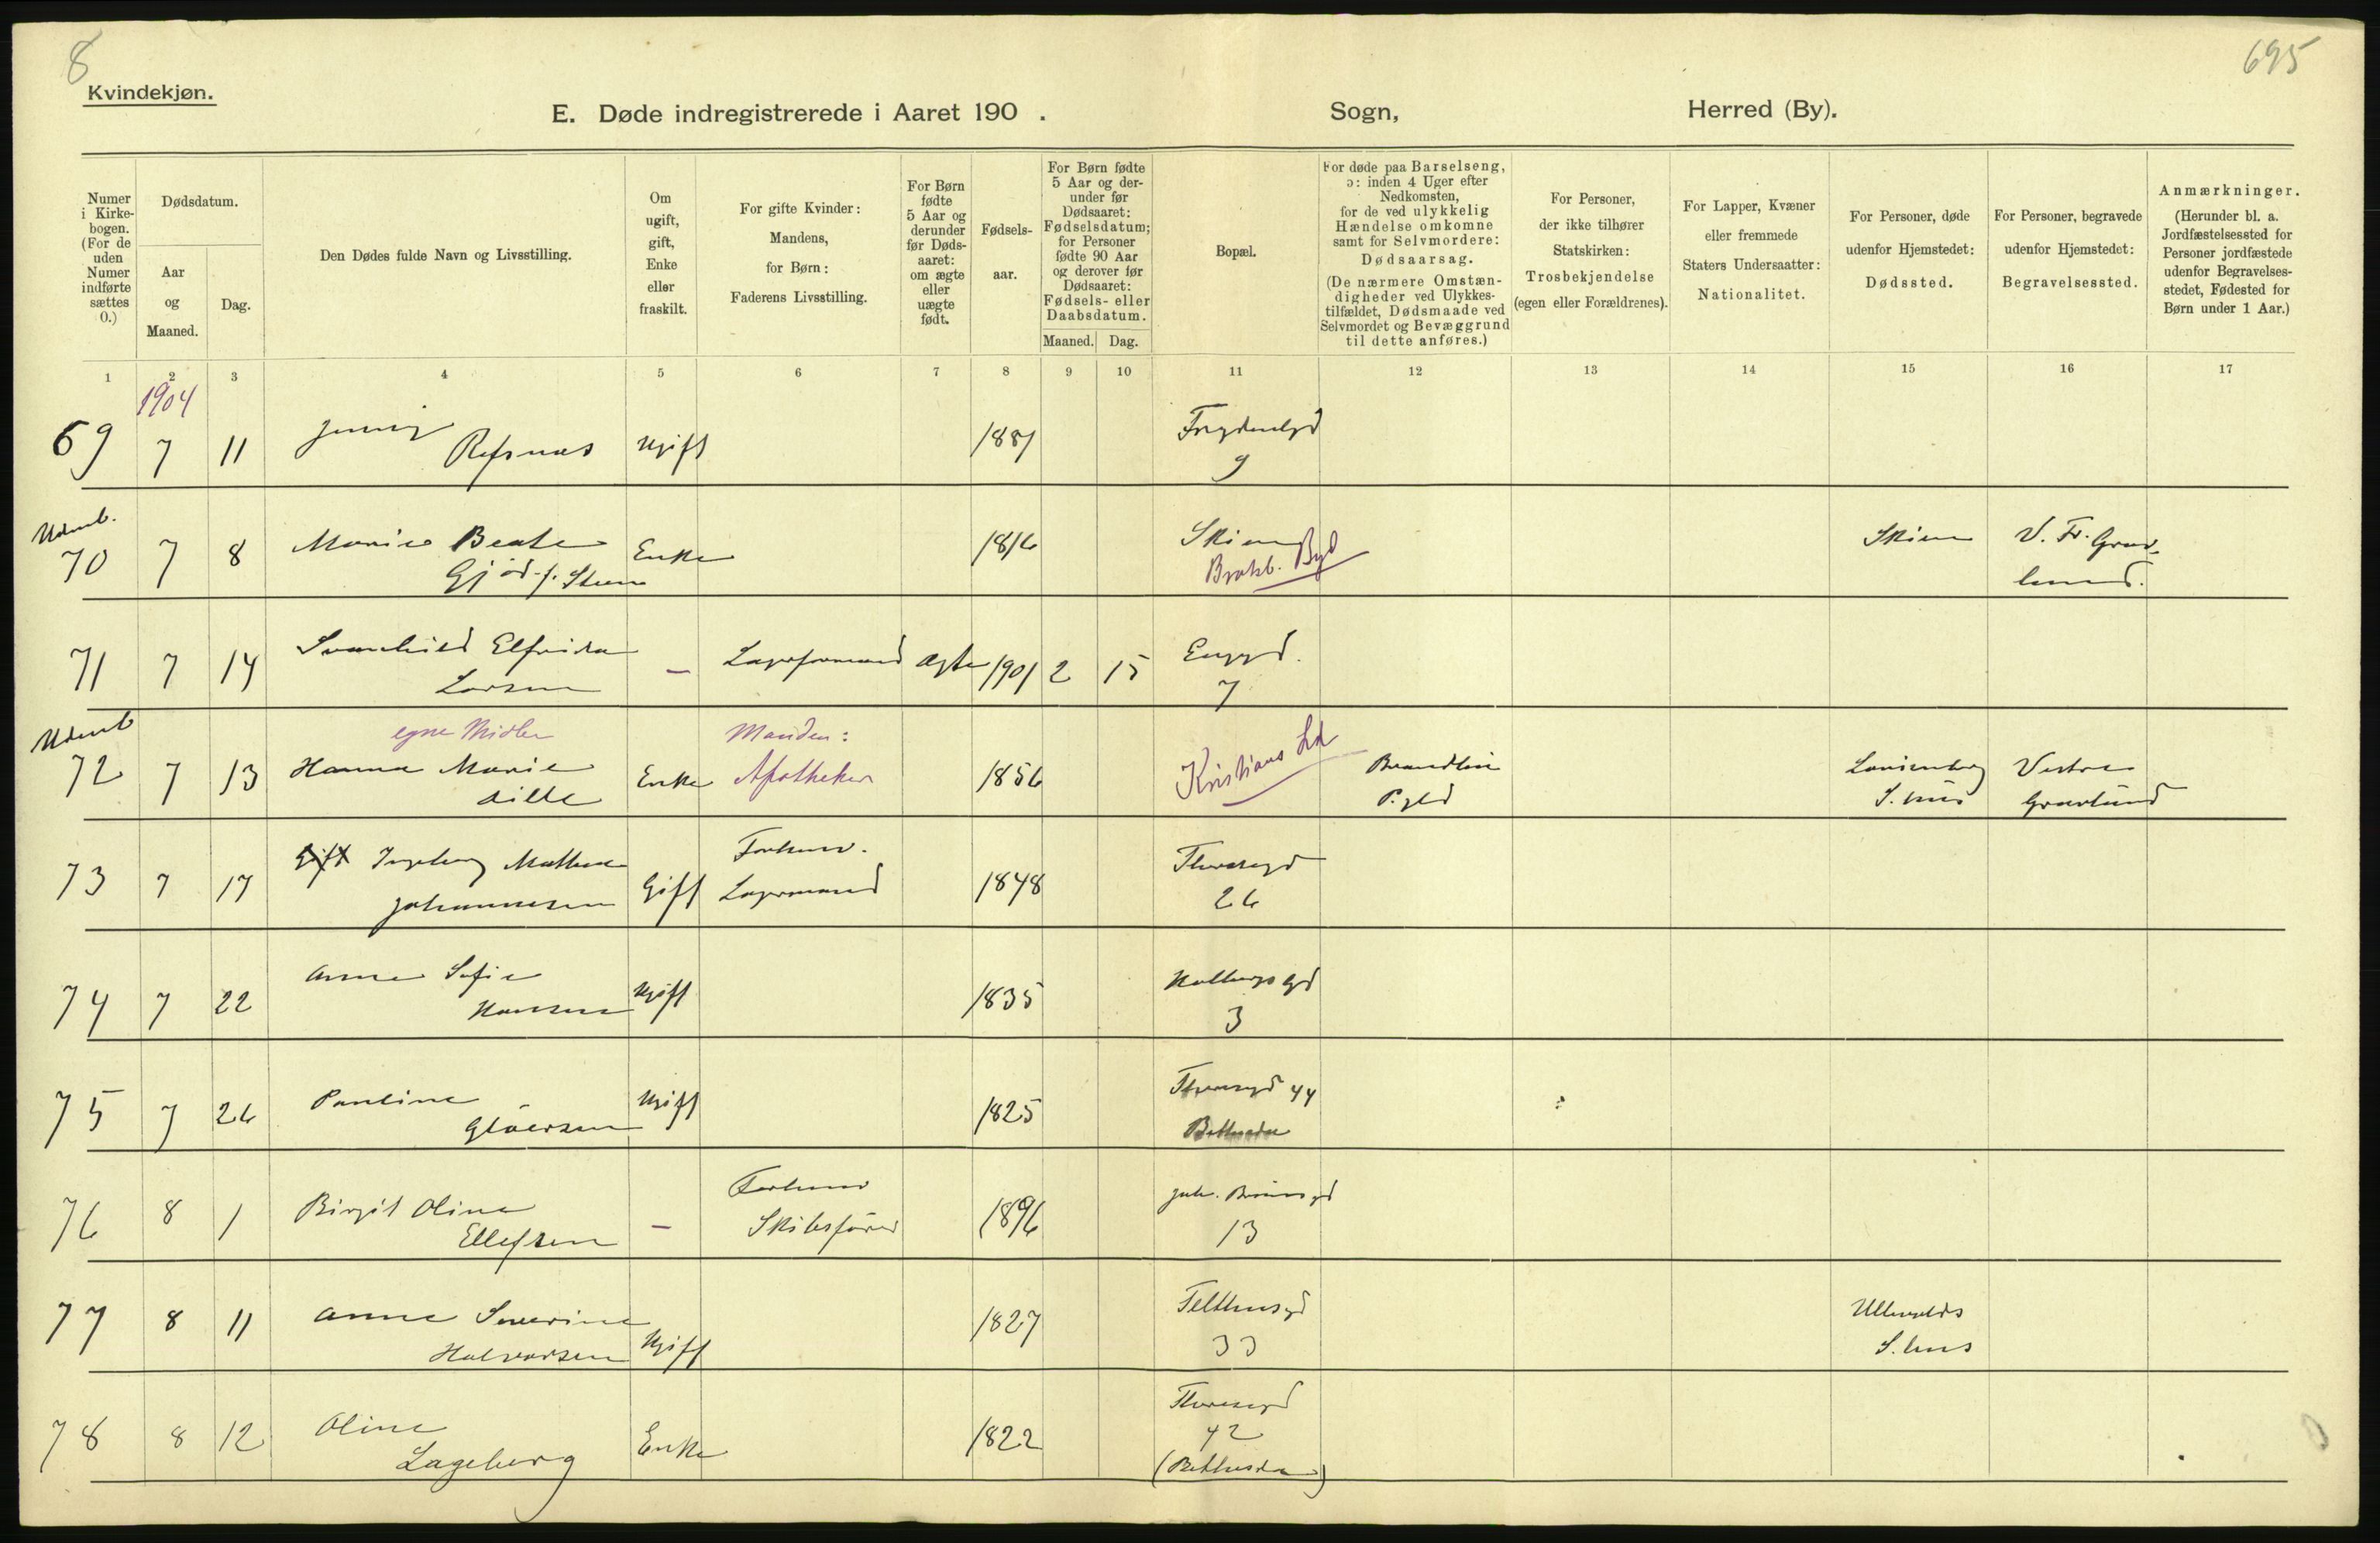 8
695
Kvindekjøn.
E. Døde indregistrerede i Aaret 190 . Sogn, Herred (By).
Numer i Kirkebogen. (For de uden Numer indførte sættes 0.)
Dødsdatum.
Aar og Maaned.
Dag.
Den Dødes fulde Navn og Livsstilling.
Om ugift, gift, Enke eller fraskilt.
For gifte Kvinder: Mandens, for Børn: Faderens Livsstilling.
For Børn fødte 5 Aar og derunder før Dødsaaret: om ægte eller uægte født.
Fødselsaar.
For Børn fødte 5 Aar og derunder før Dødsaaret: Fødselsdatum; for Personer fødte 90 Aar og derover før Dødsaaret: Fødsels- eller Daabsdatum.
Maaned. Dag.
Bopæl.
For døde paa Barselseng, ɔ: inden 4 Uger efter Nedkomsten, for de ved ulykkelig Hændelse omkomne samt for Selvmordere: Dødsaarsag. (De nærmere Omstændigheder ved Ulykkestilfældet, Dødsmaade ved Selvmordet og Bevæggrund til dette anføres.)
For Personer, der ikke tilhører Statskirken: Trosbekjendelse (egen eller Forældrenes).
For Lapper, Kvæner eller fremmede Staters Undersaatter: Nationalitet.
For Personer, døde udenfor Hjemstedet: Dødssted.
For Personer, begravede udenfor Hjemstedet: Begravelsessted.
Anmærkninger. (Herunder bl. a. Jordfæstelsessted for Personer jordfæstede udenfor Begravelsesstedet, Fødested for Børn under 1 Aar.)
1 2 3 4 5 6 7 8 9 10 11 12 13 14 15 16 17
1904
69 7 11 Jenny Refsnæs Ugift 1881 Frydenlgd 9
Udenb.
70 7 8 Marie Beate Gjöd f. Steen Enke 1816 Skien Byd Skien V. Fr. Gravlund.
71 7 14 Svanhild Elfrida Larsen — Lagerformand ægte 1901 2 15 Enggd. 7
Udenb
egne Midler Manden:
72 7 13 Hanna Marie Enke Apotheker 1856 Kristians Lovisenberg S. hus Vestre Gravlund
73 7 17 Gift Ingeborg Mathea Johannesen Gift Forhenv. Lagermand 1848 Theresegd 26
74 7 22 Anne Sofie Hansen Ugift 1835 Holbergs gd 3
75 7 26 Pauline Gløersen Ugift 1825 Theresegd 44 Bethesda
76 8 1 Birgit Oline Ellefsen — Forhenv Skibsfører 1896 Joh. Brunsgd 13
77 8 11 Anne Severine Halvorsen Ugift 1827 Felthusgd 33 Ullevolds S. hus
78 8 12 Oline Lageberg Enke 1822 Theresegd 42 (Bethesda)